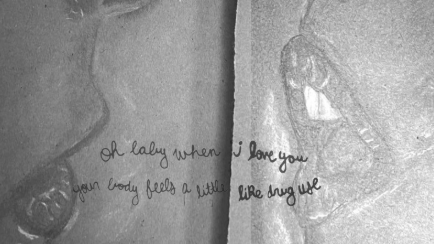 oh baby when i love you
your body feels a little like drug use